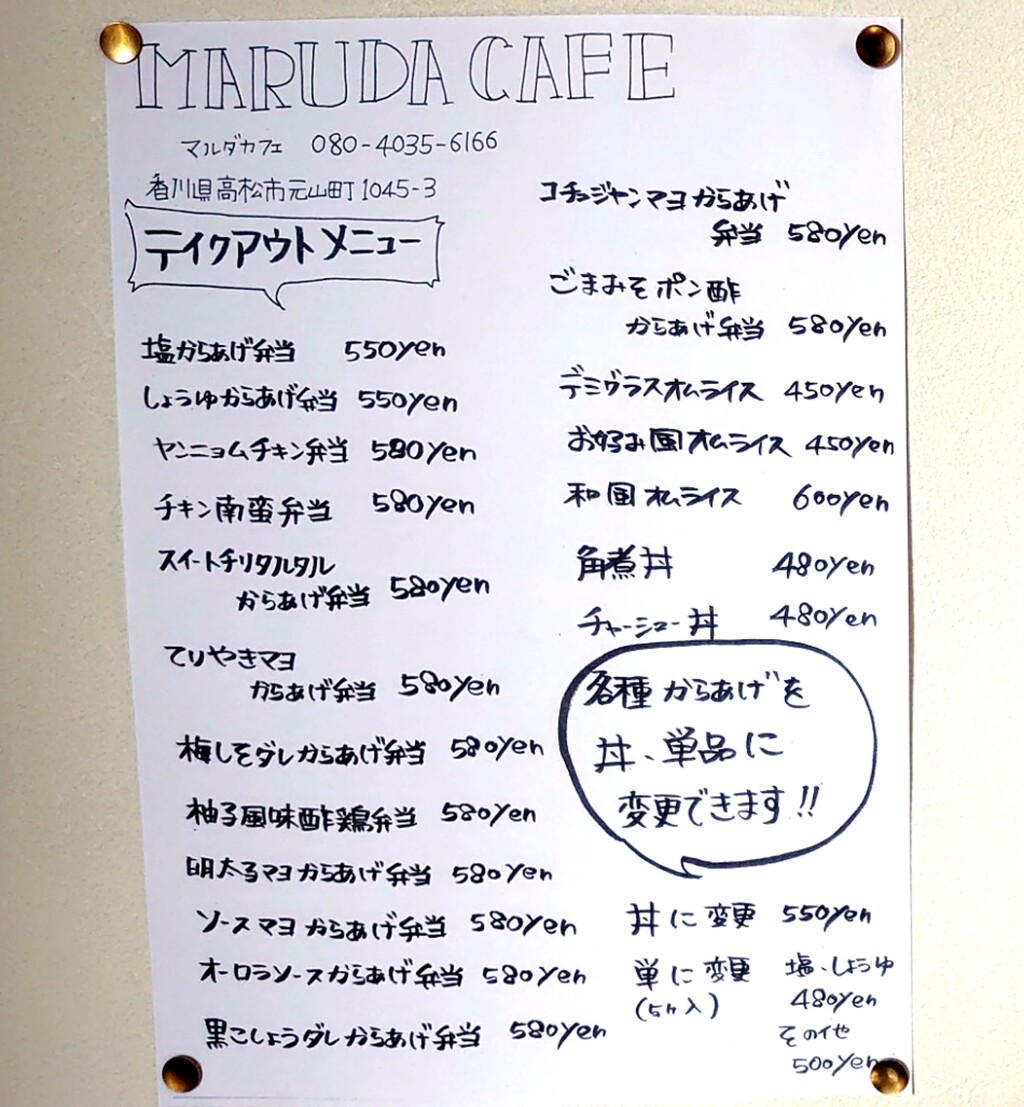 MARUDA CAFE
マルダカフェ 080-4035-6166
香川県高松市元山町1045-3
テイクアウトメニュー
塩からあげ弁当 550yen
しょうゆからあげ弁当 550yen
ヤンニョムチキン弁当 580yen
チキン南蛮弁当 580yen
スイートチリタルタル
からあげ弁当 580yen
てりやきマヨ
からあげ弁当 580yen
梅しそダレからあげ弁当 580yen
柚子風味酢鶏弁当 580yen
明太子マヨからあげ弁当 580yen
ソースマヨからあげ弁当 580yen
オーロラソースからあげ弁当 580yen
黒こしょうダレからあげ弁当 580yen
コチュジャンマヨからあげ
弁当 580yen
ごまみそポン酢
からあげ弁当 580yen
デミグラスオムライス 450yen
お好み風オムライス 450yen
和風オムライス 600yen
角煮丼 480yen
チャーシュー丼 480yen
各種からあげを
丼、単品に
変更できます!!
丼に変更 550yen
単に変更 塩、しょうゆ
(5ヶ入) 480yen
その他
500yen